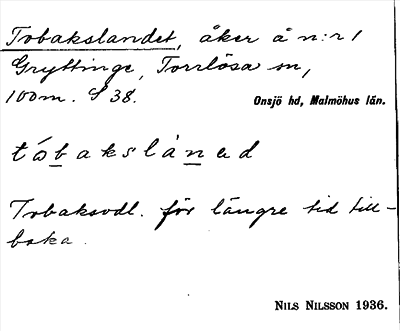 Tobakslandet, åker å n:r 1
Gryttinge, Torrlösa sn,
100m. S 38.
Onsjö hd, Malmöhus län.
tóbaksláned
Tobaksodl. för längre tid till-
baka.
NILS NILSSON 1936.